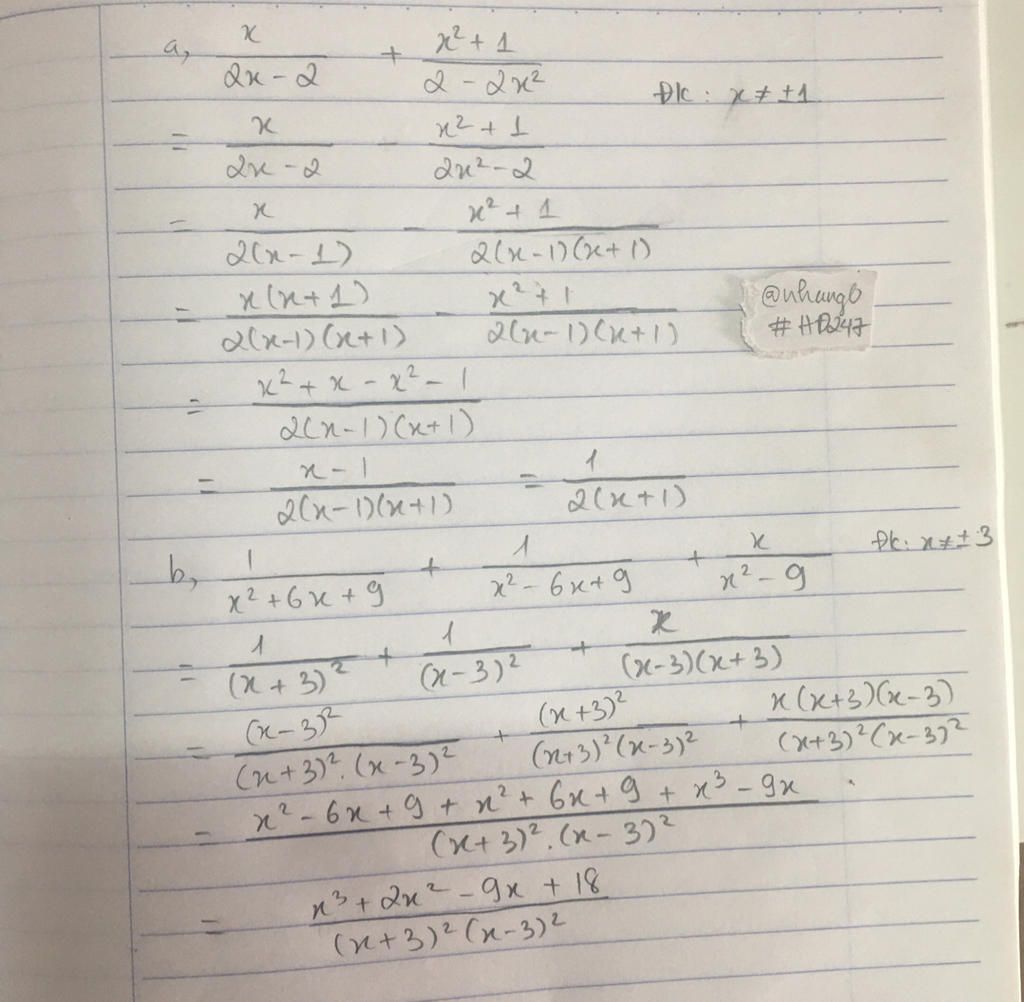 a, x/(2x - 2) + (x² + 1)/(2 - 2x²)
ĐK: x ≠ ±1
= x/(2x - 2) - (x² + 1)/(2x² - 2)
= x/(2(x - 1)) - (x² + 1)/(2(x-1)(x+1))
= x(x+1)/(2(x-1)(x+1)) - (x² + 1)/(2(x-1)(x+1))
@nhung6
#HĐ247
= (x² + x - x² - 1)/(2(x-1)(x+1))
= (x - 1)/(2(x-1)(x+1)) = 1/(2(x+1))
b, 1/(x² + 6x + 9) + 1/(x² - 6x + 9) + x/(x² - 9)
ĐK: x ≠ ± 3
= 1/(x + 3)² + 1/(x - 3)² + x/((x-3)(x+3))
= (x-3)²/((x+3)².(x-3)²) + (x+3)²/((x+3)²(x-3)²) + x(x+3)(x-3)/((x+3)²(x-3)²)
= (x² - 6x + 9 + x² + 6x + 9 + x³ - 9x)/((x+3)².(x-3)²)
= (x³ + 2x² - 9x + 18)/((x+3)²(x-3)²)